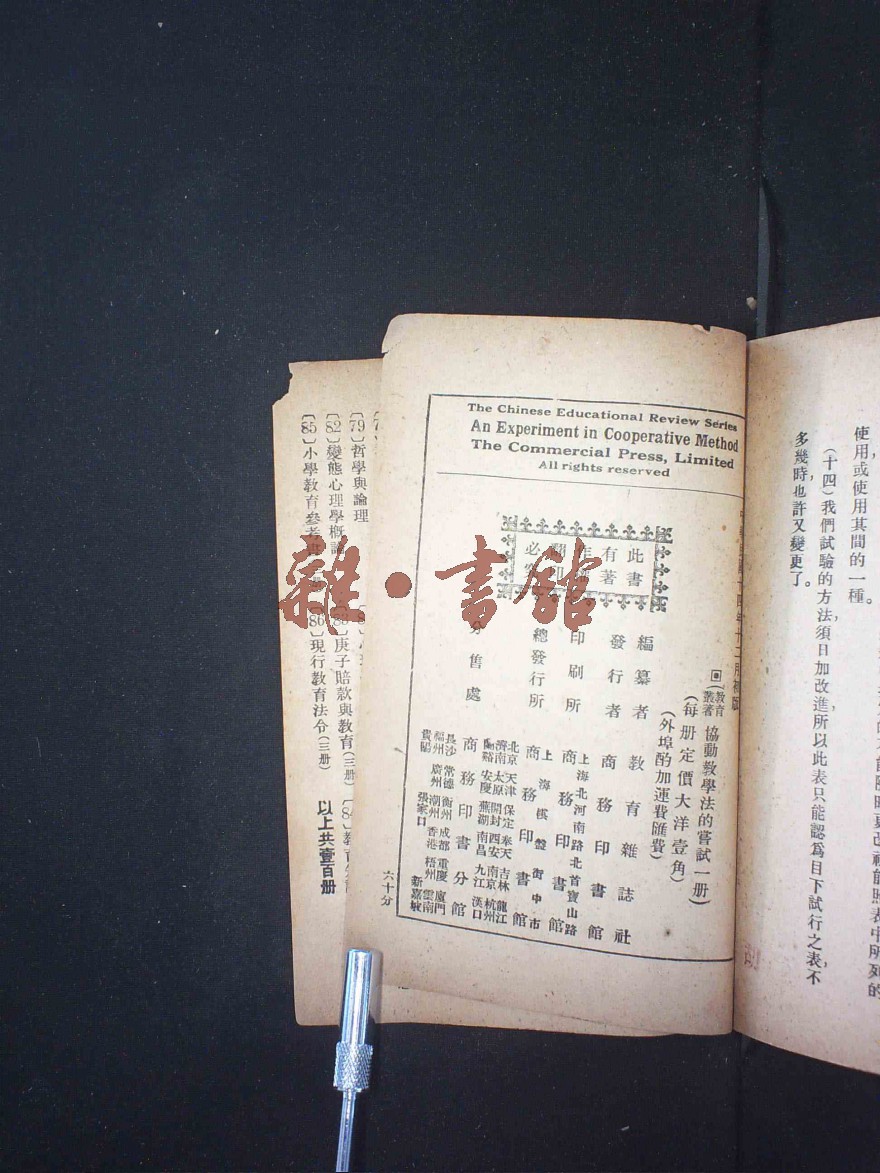 使用或使用其間的一種。
(十四)我們試驗的方法,須日加改進,所以此表只能認爲目下試行之表,不
多幾時也許又變更了。
The Chinese Educational Review Series
An Experiment in Cooperative Method
The Commercial Press, Limited
All rights reserved
十四年十二月初版
教育叢著
協動教學法的嘗試一册)
(每册定價大洋壹角)
(外埠酌加運費匯費)
此書
有著
必
編纂者 教育雜誌社
發行者 商務印書館
印刷所 上海北河南路北首寶山路 商務印書館
總發行所 上海棋盤街中市 商務印書館
分售處 商務印書分館
北京 天津 保定 奉天 吉林 龍江
濟南 太原 開封 西安 南京 杭州
安慶 蕪湖 南昌 九江 漢口
長沙 常德 衡州 成都 重慶 廈門
福州 廣州 潮州 香港 梧州 雲南
貴陽 張家口 新嘉坡
六十分
〔79〕哲學與論理
〔82〕變態心理學概論
庚子賠款與教育(三册)
〔84〕教育
〔85〕小學教育參考
〔86〕現行教育法令(三册)
以上共壹百册
雜·書館
胡